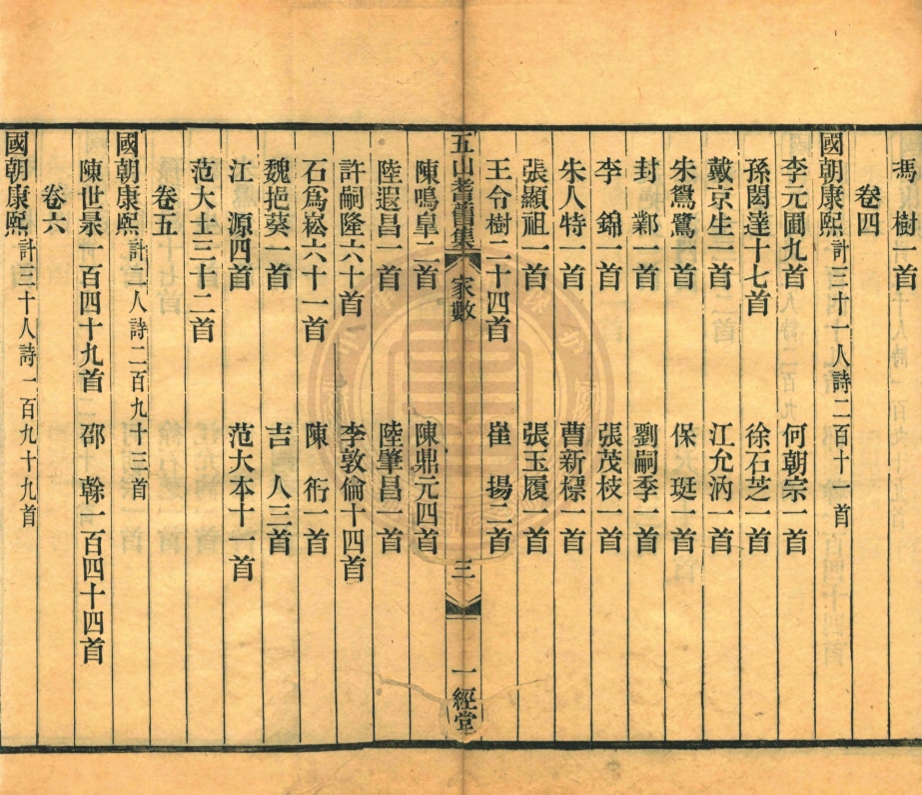 馮樹一首
卷四
國朝康熙計三十一人詩二百十一首
李元圃九首 何朝宗一首
孫閎達十七首 徐石芝一首
戴京生一首 江允汭一首
朱鴛鷺一首 保珽一首
封鄴一首 劉嗣季一首
李錦一首 張茂枝一首
朱人特一首 曹新標一首
張顯祖一首 張玉履一首
王令樹二十四首 崔揚二首
五山耆舊集 家數 三 一經堂
陳鳴皇二首 陳鼎元四首
陸遐昌一首 陸肇昌一首
許嗣隆六十首 李敦倫十四首
石爲崧六十一首 陳衍一首
魏挹葵一首 吉人三首
江源四首 范大本十一首
范大士三十二首
卷五
國朝康熙計二人詩二百九十三首
陳世㬌一百四十九首 邵榦一百四十四首
卷六
國朝康熙計三十人詩一百九十九首